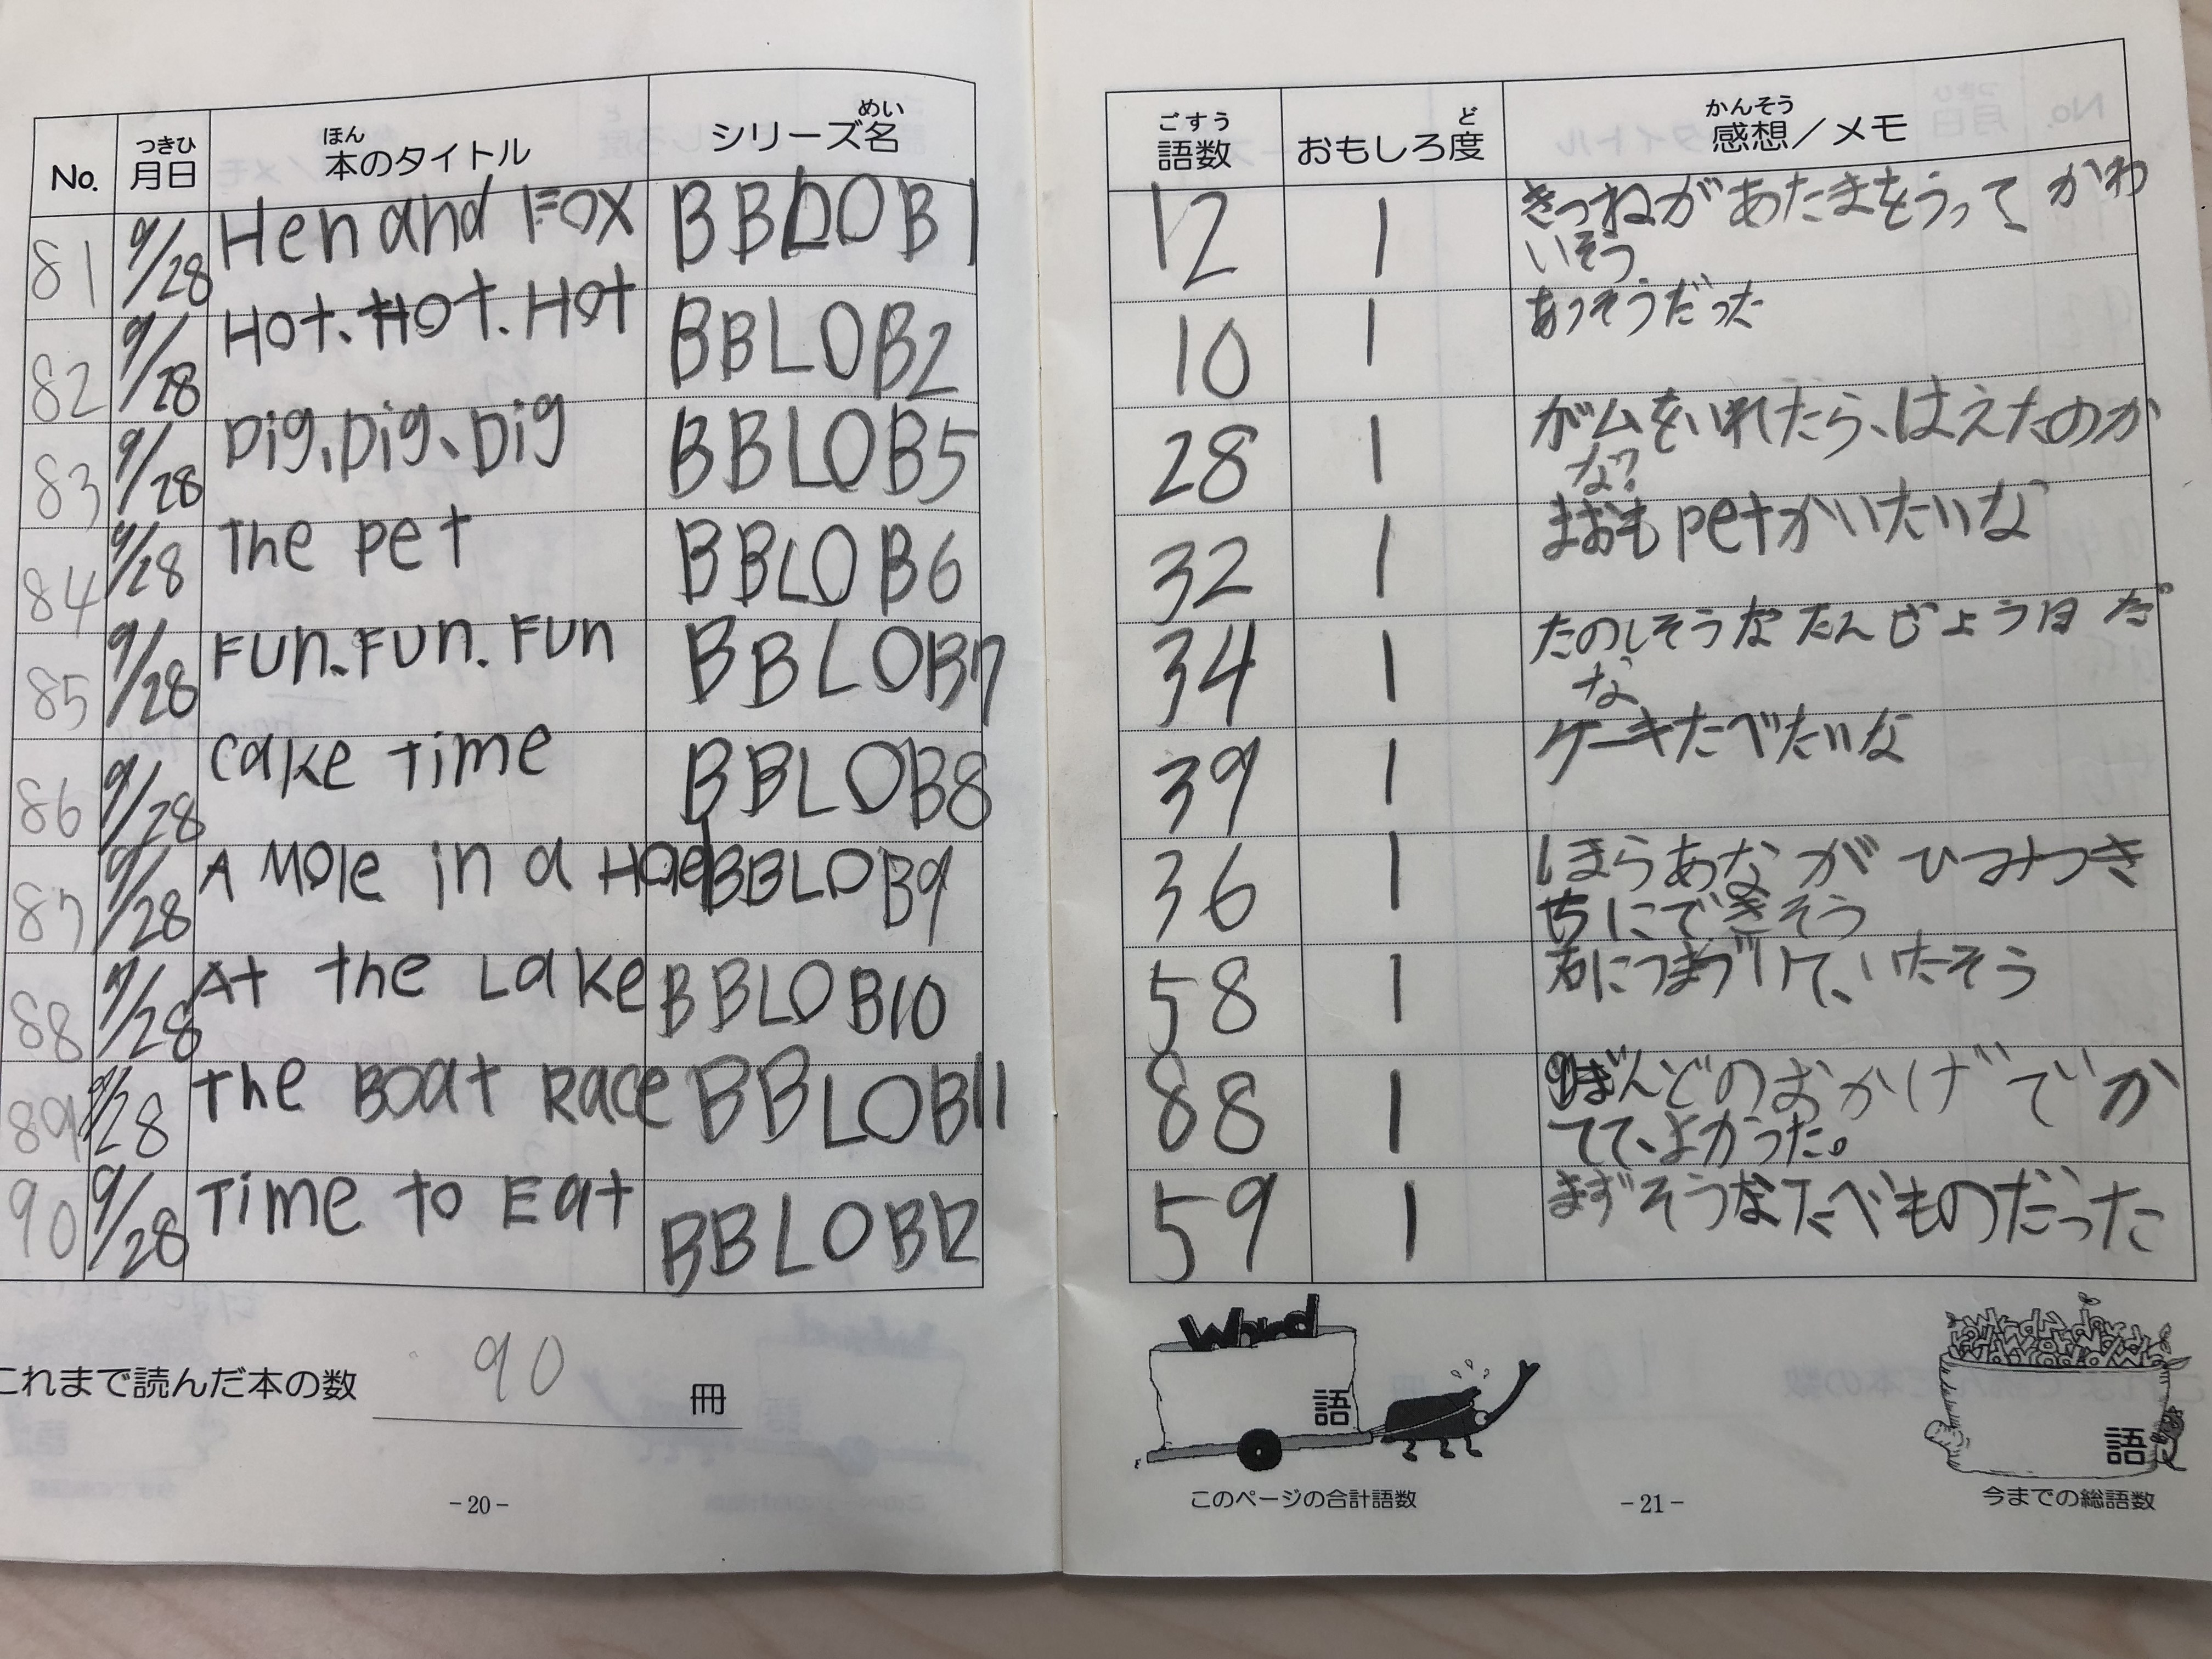 No. 月日 本のタイトル シリーズ名 語数 おもしろ度 感想／メモ
つきひ ほん めい ごすう ど かんそう
81 9/28 Hen and Fox BBLOB1 12 1 きつねがあたまをうって かわ
いそう
82 9/28 Hot、Hot、Hot BBLOB2 10 1 あつそうだった
83 9/28 Dig、Dig、Dig BBLOB5 28 1 ガムをいれたら、はえたのか
な?
84 9/28 The pet BBLOB6 32 1 まおも petかいたいな
85 9/28 Fun、Fun、Fun BBLOB7 34 1 たのしそうなたんじょう日だ
な
86 9/28 cake time BBLOB8 39 1 ケーキたべたいな
87 9/28 A Mole in a Hoel BBLOB9 36 1 ほらあながひみつき
ちにできそう
88 9/28 At the Lake BBLOB10 58 1 石につまづいて、いたそう
89 9/28 The Boat Race BBLOB11 88 1 のおかげでか
てて、よかった。
90 9/28 Time to Eat BBLOB12 59 1 まずそうなたべものだった
これまで読んだ本の数 90 冊
Word
語
このページの合計語数
語
今までの総語数
-20-
-21-